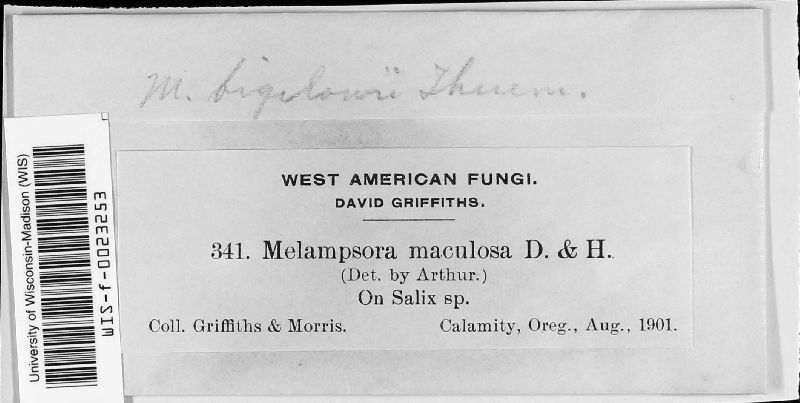 M. bigelowii Thuem.
WEST AMERICAN FUNGI.
DAVID GRIFFITHS.
341. Melampsora maculosa D. & H.
(Det. by Arthur.)
On Salix sp.
Coll. Griffiths & Morris. Calamity, Oreg., Aug., 1901.
University of Wisconsin-Madison (WIS)
WIS-f-0023253